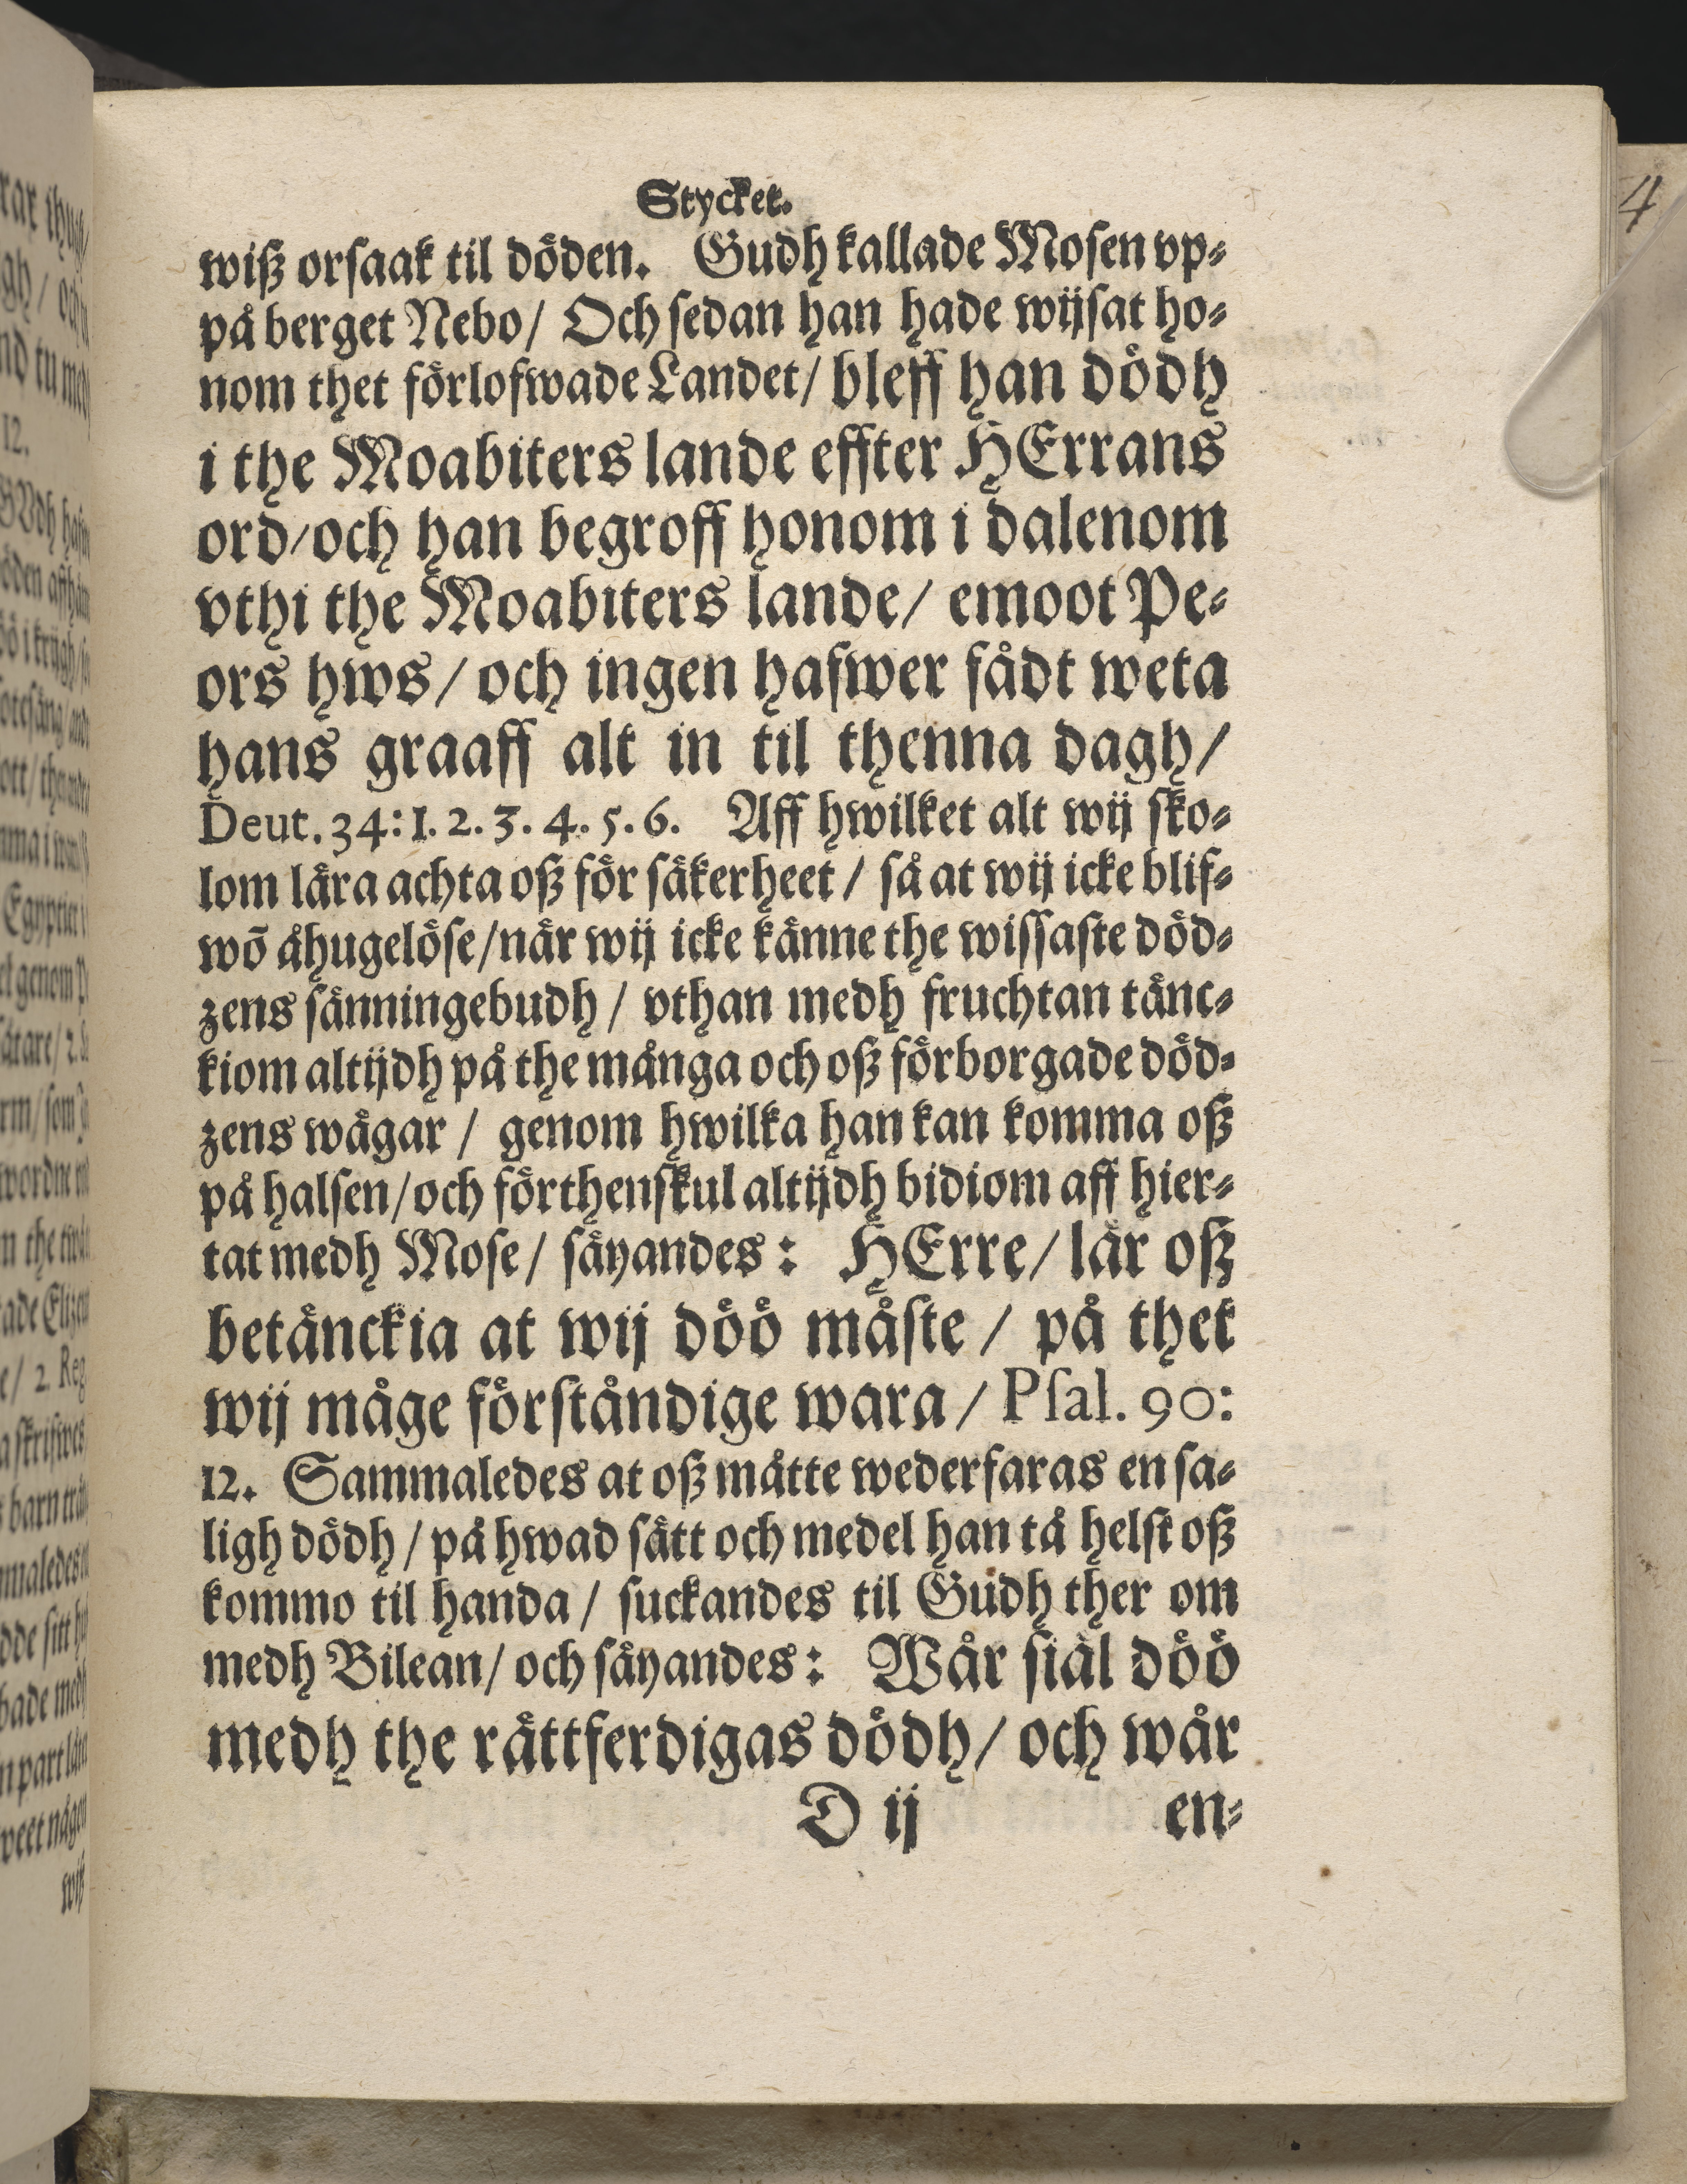 Stycket.
wiß orſaak til döden. Gudh kallade Moſen vp⸗
på berget Nebo/ Och ſedan han hade wijſat ho⸗
nom thet förlofwade Landet/ bleff han dödh
i the Moabiters lande effter HErrans
ord/och han begroff honom i dalenom
vthi the Moabiters lande/ emoot Pe⸗
ors hws/ och ingen hafwer fådt weta
hans graaff alt in til thenna dagh/
Deut. 34: 1. 2. 3. 4. 5. 6. Aff hwilket alt wij ſko⸗
lom lära achta oß för ſäkerheet / ſå at wij icke blif⸗
wõ åhugelöſe/när wij icke känne the wiſſaſte död⸗
zens ſänningebudh / vthan medh fruchtan tänc⸗
kiom altijdh på the många och oß förborgade död⸗
zens wägar / genom hwilka han kan komma oß
på halſen/och förthenſkul altijdh bidiom aff hier⸗
tat medh Moſe/ ſäyandes: HErre/ lär oß
betänckia at wij döö måſte / på thet
wij måge förſtåndige wara / Pſal. 90:
12. Sammaledes at oß måtte wederfaras en ſa⸗
ligh dödh / på hwad ſätt och medel han tå helſt oß
kommo til handa / ſuckandes til Gudh ther om
medh Bilean/ och ſäyandes: Wår ſiäl döö
medh the rättferdigas dödh/ och wår
D ij en⸗
4